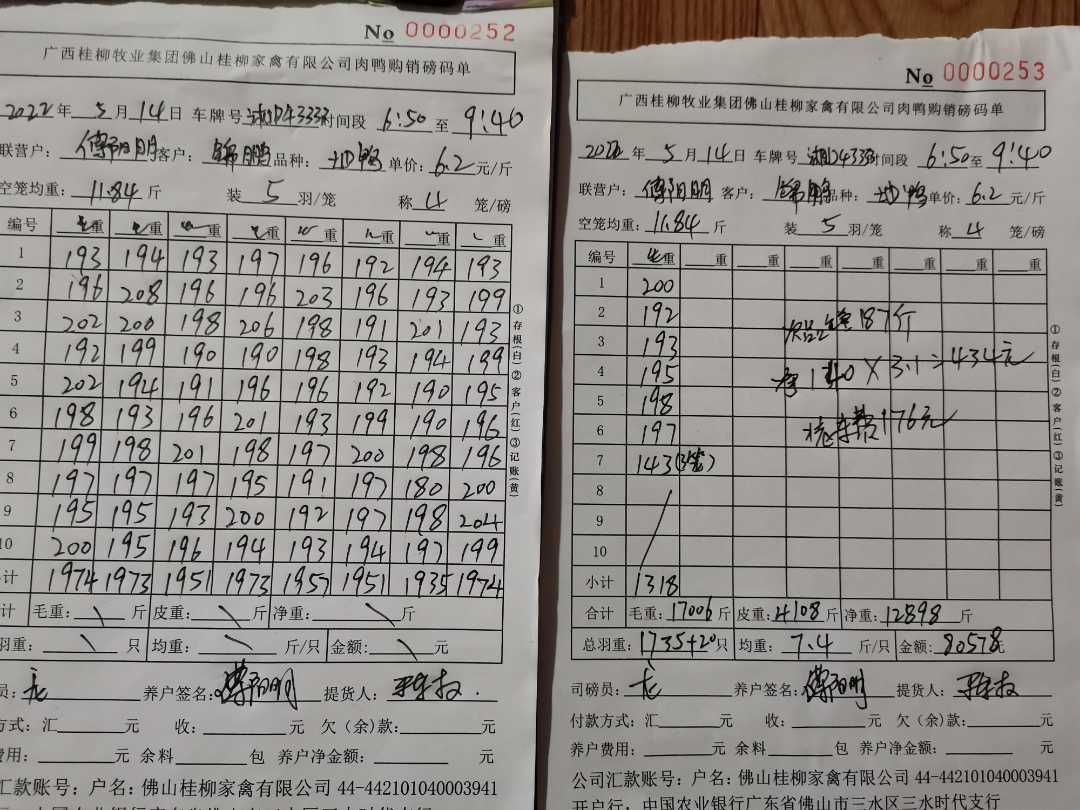 No 0000252
广西桂柳牧业集团佛山桂柳家禽有限公司肉鸭购销磅码单
2022年 5月14日 车牌号 湘D43333 时间段 6:50至9:40
联营户: 傅阳明 客户: 锦鹏 品种: 土口鸭 单价: 6.2元/斤
空笼均重: 11.84斤 装 5 羽/笼 称 4 笼/磅
编号 重 重 重 重 重 重 重 重
1 193 194 193 197 196 192 194 193
2 196 208 196 196 203 196 193 199
3 202 200 198 206 198 191 201 193
4 192 199 190 190 198 193 194 199
5 202 194 191 196 196 192 190 195
6 198 193 196 201 193 199 190 196
7 199 198 201 198 197 200 198 196
8 197 197 197 195 191 197 180 200
9 195 195 193 200 192 197 198 204
10 200 195 196 194 193 194 197 199
计 1974 1973 1951 1973 1957 1951 1935 1974
计 毛重: 斤 皮重: 斤 净重: 斤
羽重: 只 均重: 斤/只 金额: 元
员: 养户签名: 傅阳明 提货人:
方式: 汇 元 收: 元 欠(余)款: 元
费用: 元 余料 包 养户净金额: 元
汇款账号: 户名: 佛山桂柳家禽有限公司 44-442101040003941
①存根(白)②客户(红)③记账(黄)
No 0000253
广西桂柳牧业集团佛山桂柳家禽有限公司肉鸭购销磅码单
2022年 5月14日 车牌号 时间段 6:50至9:40
联营户: 傅阳明 客户: 锦鹏 品种: 鸭 单价: 6.2元/斤
空笼均重: 11.84斤 装 5 羽/笼 称 4 笼/磅
编号 重 重 重 重 重 重 重 重
1 200
2 192 187斤
3 193
4 195 净140×3.1=434元
5 198
6 197 费176元
7 143(3笼)
8
9
10
小计 1318
合计 毛重: 17006斤 皮重: 4108斤 净重: 12898斤
总羽重: 1735+20只 均重: 7.4斤/只 金额: 80578元
司磅员: 养户签名: 傅阳明 提货人:
付款方式: 汇 元 收: 元 欠(余)款: 元
养户费用: 元 余料 包 养户净金额: 元
公司汇款账号: 户名: 佛山桂柳家禽有限公司 44-442101040003941
开户行: 中国农业银行广东省佛山市三水区三水时代支行
①存根(白)②客户(红)③记账(黄)